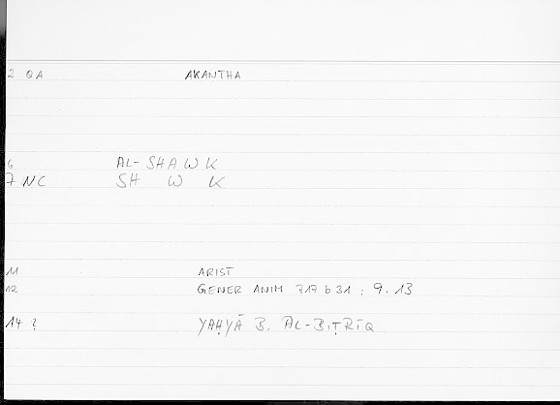 2 QA AKANTHA
6 AL-SHAWK
7 NC SH W K
11 ARIST
12 GENER ANIM 717 b 31 : 9.13
14 ? YAḤYĀ B. AL-BIṬRĪQ